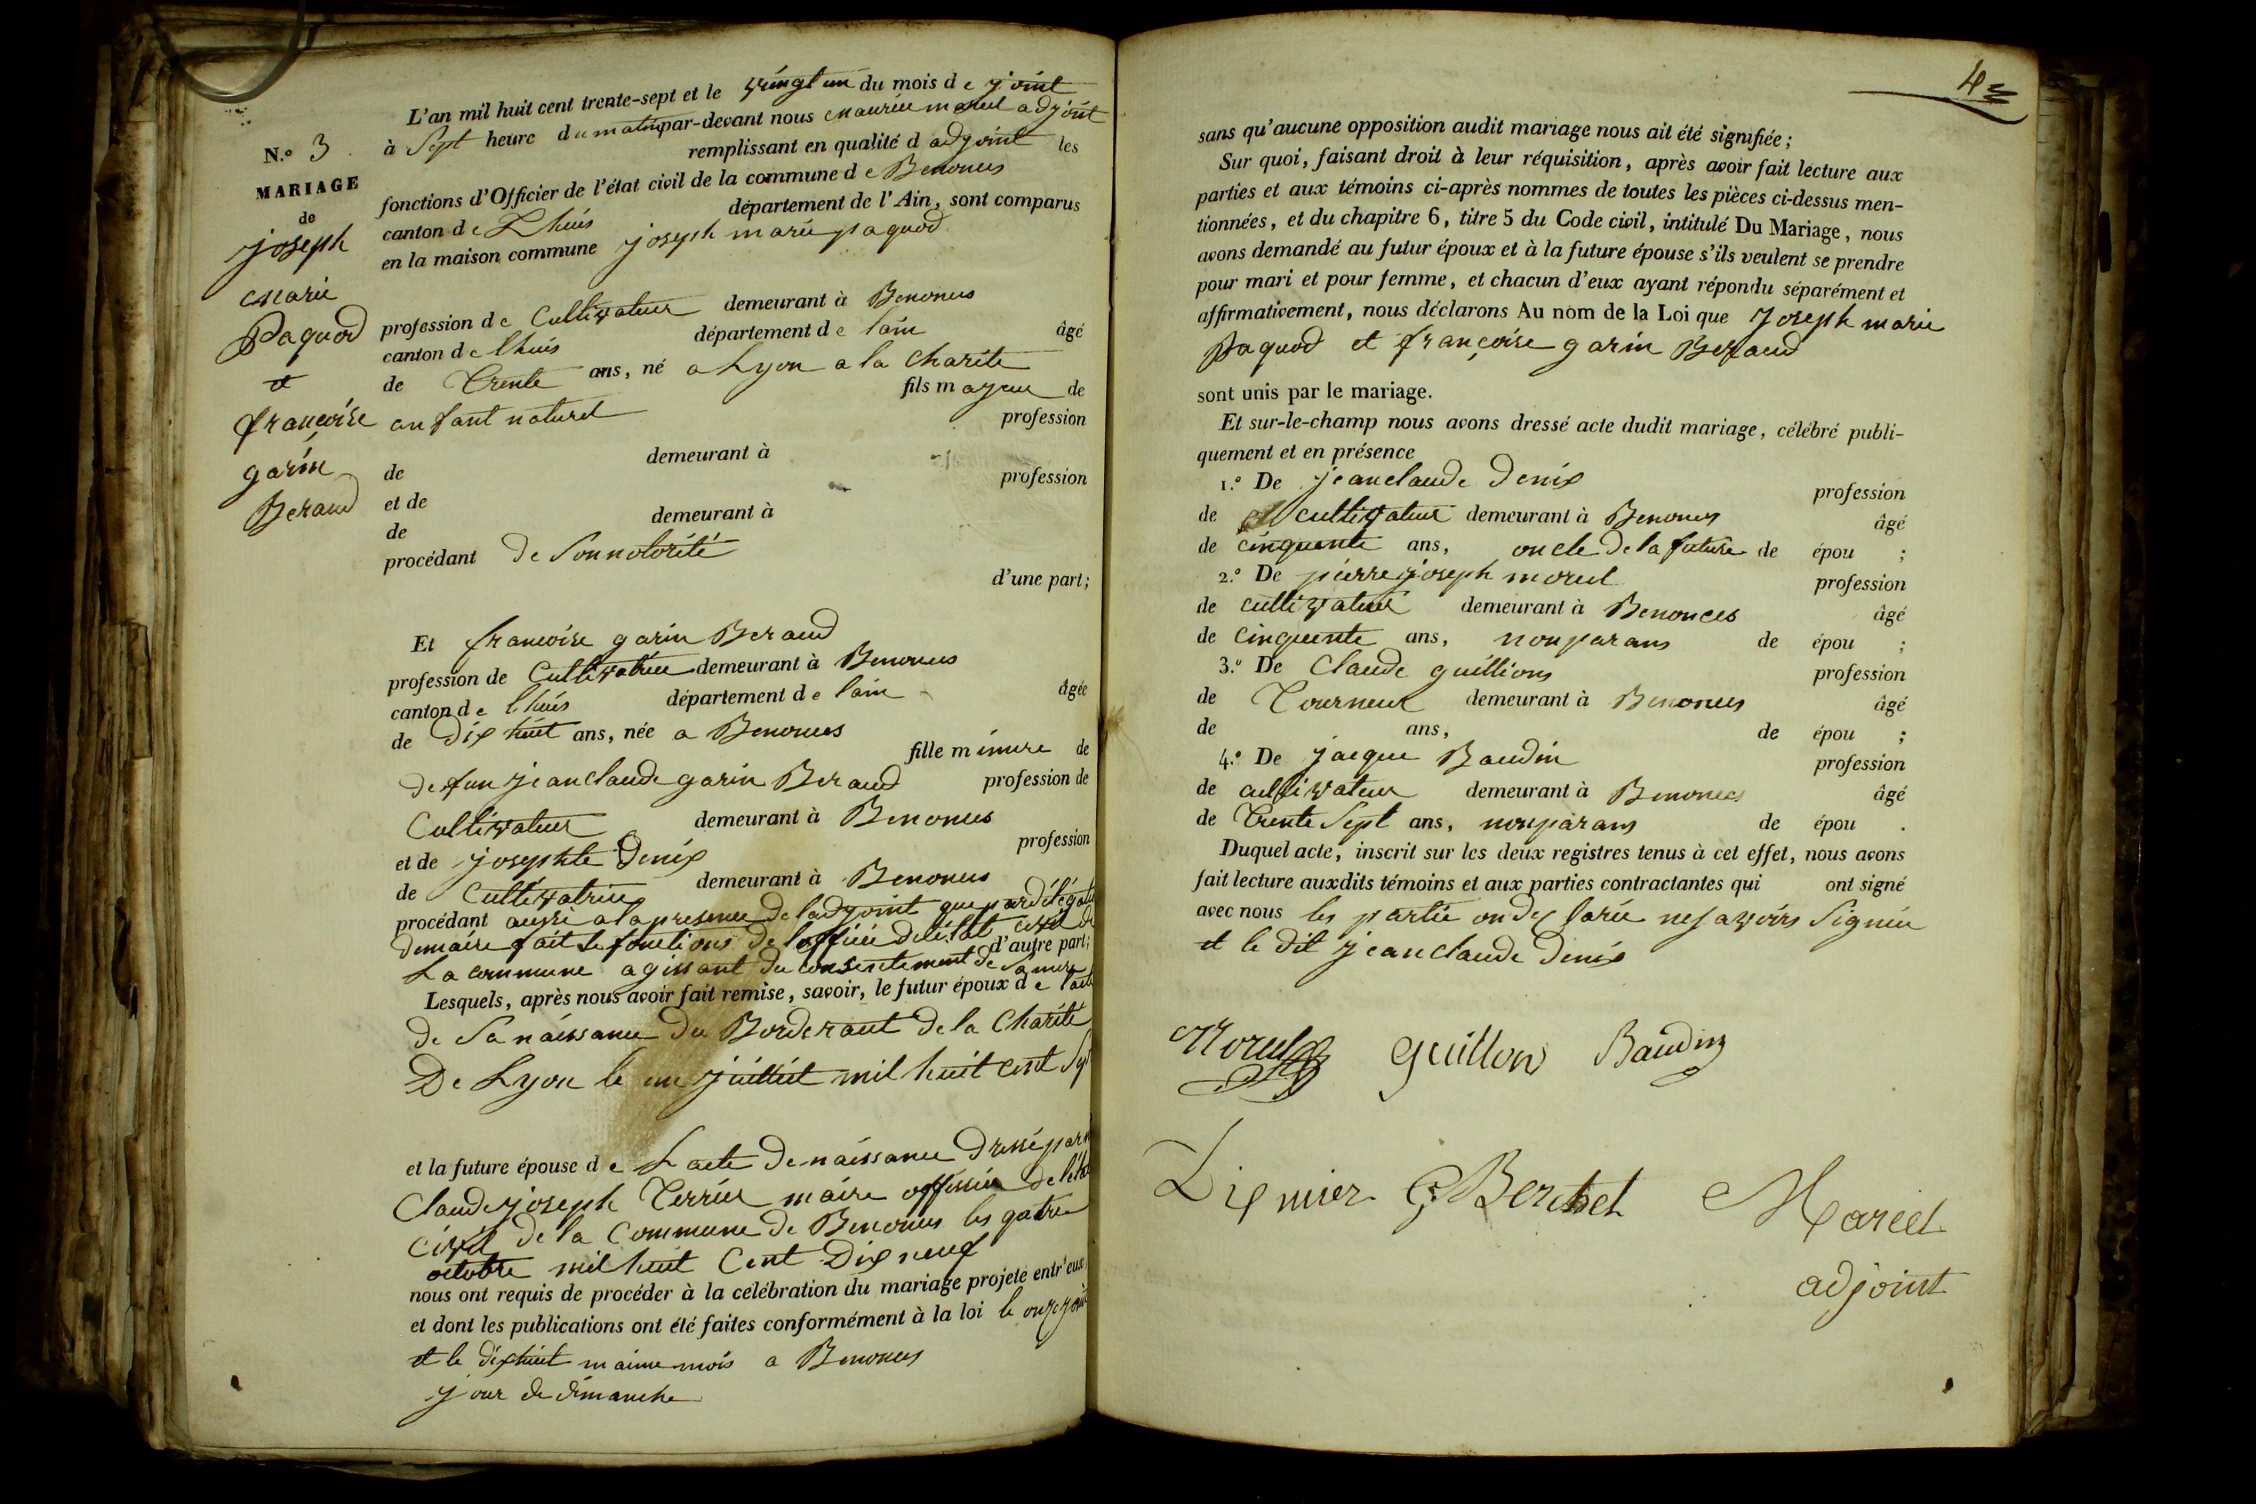 N.º 3
MARIAGE
de
joseph
marie
Paquod
et
francoise
garin
Beraud
L'an mil huit cent trente-sept et le vingt un du mois de joint
à Sept heure du matin par-devant nous maurice morel adjoint
remplissant en qualité d adjoint les
fonctions d'Officier de l'état civil de la commune de Benonces
canton de Lhuis département de l'Ain, sont comparus
en la maison commune joseph marie paquod
profession de Cultivateur demeurant à Benonces
canton de lhuis département de lain âgé
de Trente ans, né a Lyon a la Charite
fils majeur de
enfant naturel profession
de demeurant à
et de profession
de demeurant à
procédant de Son notorité
d'une part;
Et francoise garin Beraud
profession de Cultivatrice demeurant à Benonces
canton de lhuis département de lain âgée
de Dix huit ans, née a Benonces
fille mineure de
defun jean claude garin Beraud profession de
Cultivateur demeurant à Benonces
et de josephte Denis profession
de Cultivatrice demeurant à Benonces
procédant aussi a la presence de ladjoint que par délégation
de maire fait le fonctions de lofficié delétat civil de
d'autre part;
La commune agissant du consentement de Sa mere
Lesquels, après nous avoir fait remise, savoir, le futur époux de lacte
de Sa naissance du Borderaut de la Charité
De Lyon le un juillet mil huit cent Sept
et la future épouse de Lacte de naissance Dressé par
Claude joseph Terrier maire officier de létat
Civil de la Commune de Benonces les quatre
octobre mil huit Cent Dix neuf
nous ont requis de procéder à la célébration du mariage projeté entr'eux,
et dont les publications ont été faites conformément à la loi le onze join
et le dix huit maime mois a Benonces
jour de dimanche
4
sans qu'aucune opposition audit mariage nous ait été signifiée;
Sur quoi, faisant droit à leur réquisition, après avoir fait lecture aux
parties et aux témoins ci-après nommes de toutes les pièces ci-dessus men-
tionnées, et du chapitre 6, titre 5 du Code civil, intitulé Du Mariage, nous
avons demandé au futur époux et à la future épouse s'ils veulent se prendre
pour mari et pour femme, et chacun d'eux ayant répondu séparément et
affirmativement, nous déclarons Au nom de la Loi que Joseph marie
Paquod et françoise garin Beraud
sont unis par le mariage.
Et sur-le-champ nous avons dressé acte dudit mariage, célébré publi-
quement et en présence
1.º De jean claude Denis profession
de cultivateur demeurant à Benonces âgé
de cinquente ans, oncle de la future de épou ;
2.º De pierre joseph morel profession
de cultivateur demeurant à Benonces âgé
de cinquente ans, non parans de épou ;
3.º De Claude guillions profession
de Tourneur demeurant à Benonces âgé
de ans, de épou ;
4.º De jacque Baudin profession
de cultivateur demeurant à Benonces âgé
de Trente Sept ans, non parans de épou .
Duquel acte, inscrit sur les deux registres tenus à cet effet, nous avons
fait lecture auxdits témoins et aux parties contractantes qui ont signé
avec nous les partie on dex larée ne savoirs Signée
et le dit jean claude Denis
Morel Guillon Baudin
Dipmier G Berthet Marcel
adjoint